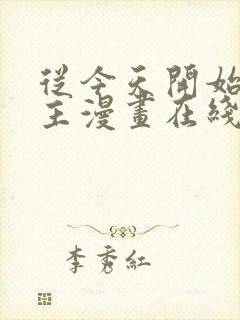 從今天開始
主漫畫在綫
李秀紅